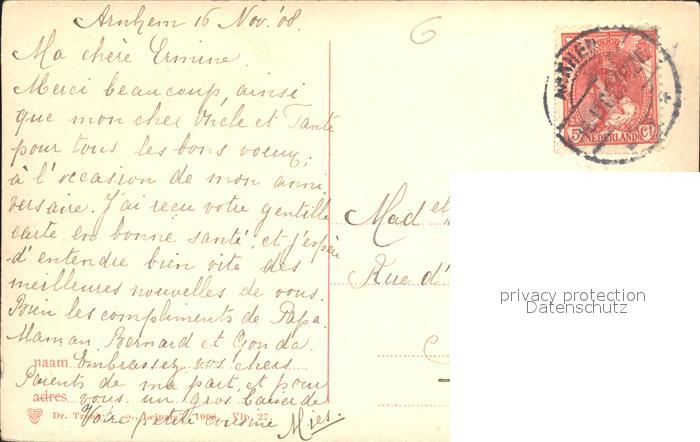 Arnhem 16 Nov. '08.
Ma chère Ermine.
Merci beaucoup, ainsi
que mon cher Oncle et Tante
pour tous les bons voeux,
à l'occasion de mon anni
versaire. J'ai reçu votre gentille
carte en bonne santé, et j'espère
d'entendre bien vite des
meilleures nouvelles de vous.
Bien les compliments de Papa
Maman Bernard et Gonda.
naam Embrassez vos chers
Parents de ma part, et pour
adres vous un gros baiser de
Votre petite cousine Mies.
Dr. Leipzig 1906. Vlp. 27.
6
ARNHEM
5 NEDERLAND Ct
Mad
Rue d'
privacy protection
Datenschutz